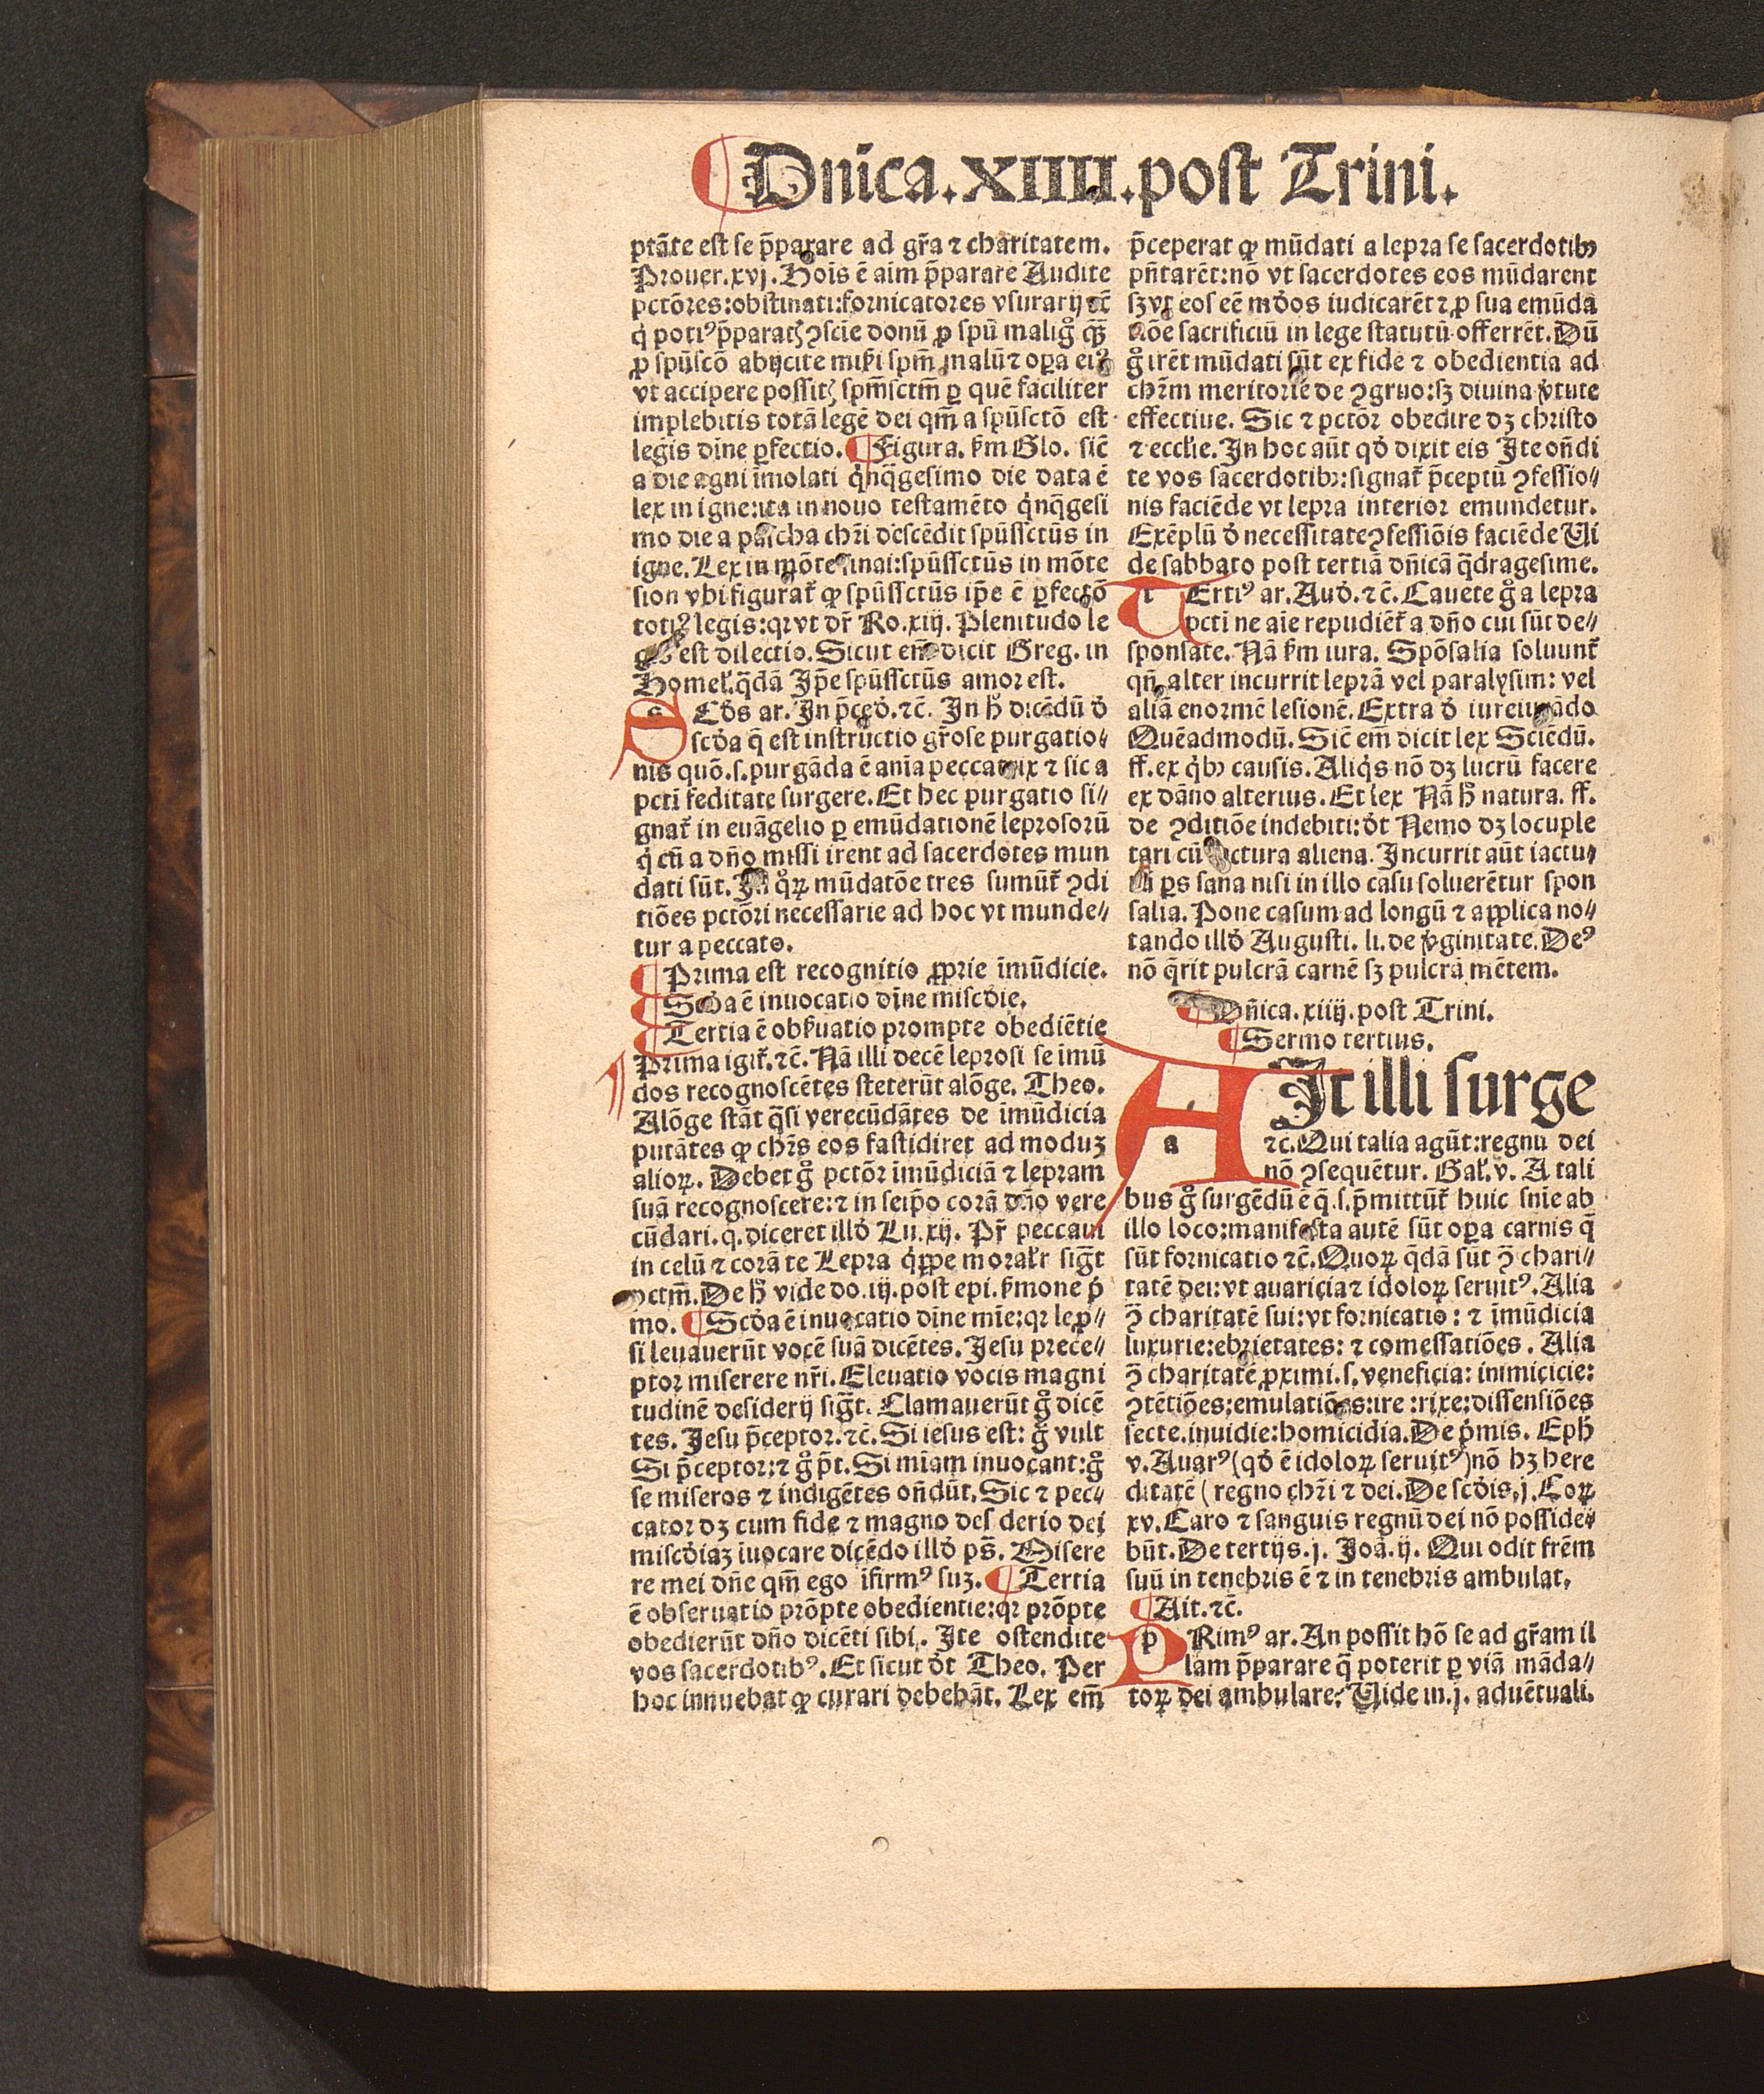 Dnica.XIIII.post Trini.
ptāte est se p̄parare ad gr̄a ⁊ charitatem.
Prouer.xvj. Hoīs ē aīm p̄parare Audite
pctōres:obstinati:fornicatores vsurarij ⁊c̄
ꝓ spūscō abijcite mihi spm̄ malū⁊ oꝑa eiꝰ
vt accipere possitꝭ spm̄sctm̄ ꝑ quē faciliter
implebitis totā legē dei qm̄ a spūsctō est
legis dīne ꝑfectio. Figura. ẜm Glo. sic̄
a die agni īmolati q̇nq̄gesimo die data ē
lex in igne:ita in nouo testamēto q̇nq̄gesi
mo die a pascha chr̄i descēdit spūssctūs in
igne. Lex in mōte sinai:spūssctūs in mōte
sion vbi figurat̄ ꝙ spūssctūs ip̄e ē ꝑfectō
totiꝰ legis:qꝛ vt dr̄ Ro.xiij. Plenitudo le
est dilectio. Sicut em̄ dicit Greg. in
Homel̄.q̄dā Ip̄e spūssctūs amor est.
S Cd̕s ar. In p̄ced̕.⁊c̄. In h̄ dicēdū d̕
scd̕a q̄ est instructio gr̄ose purgatio⸗
nis quō.s.purgāda ē anīa peccatrix ⁊ sic a
pcti feditate surgere. Et hec purgatio si⸗
gnat̄ in euāgelio ꝑ emūdationē leprosorū
q̇ cū a dn̄o missi irent ad sacerdotes mun
dati sūt. In qͦꝝ mūdatōe tres sumūt̄ ↄdi
tiōes pctōri necessarie ad hoc vt munde⸗
tur a peccato.
Prima est recognitio ꝓprie īmūdicie.
Scd̕a ē inuocatio dīne miscd̕ie.
Tertia ē obẜuatio prompte obediētie
Prima igit̄.⁊c̄. Nā illi decē leprosi se īmū
dos recognoscētes steterūt alōge. Theo.
Alōge stāt q̄si verecūdātes de īmūdicia
putātes ꝙ chr̄s eos fastidiret ad moduꝫ
alioꝝ. Debet gͦ pctōr īmūdiciā ⁊ lepram
suā recognoscere:⁊ in seip̄o corā dn̄o vere
cūdari.q.diceret illd̕ Lu.xij. Pr̄ peccaui
in celū ⁊ corā te Lepra q̇ppe moral̄r sigt̄
pctm̄. De h̄ vide do.iij.post epi.ẜmone p̕
mo. Scd̕a ē inuocatio dīne mīe:qꝛ lepꝛ⸗
si leuauerūt vocē suā dicētes. Jesu prece⸗
ptor miserere nr̄i. Eleuatio vocis magni
tudinē desiderij sigt̄. Clamauerūt gͦ dicē
tes. Jesu p̄ceptor.⁊c̄. Si iesus est: gͦ vult
Si p̄ceptor:⁊ gͦ p̄t. Si mīam inuocant:gͦ
se miseros ⁊ indigētes on̄dūt. Sic ⁊ pec⸗
cator dꝫ cum fide ⁊ magno desiderio dei
miscd̕iaꝫ iuocare dicēdo illd̕ ps̄. Misere
re mei dn̄e qm̄ ego īfirmꝰ suꝫ. Tertia
ē obseruatio prōpte obedientie:qꝛ prōpte
obedierūt dn̄o dicēti sibi. Ite ostendite
vos sacerdotibꝰ. Et sicut d̕t Theo. Per
hoc innuebat ꝙ curari debebāt. Lex em̄
p̄ceperat ꝙ mūdati a lepra se sacerdotibꝫ
pn̄tarēt:nō vt sacerdotes eos mūdarent
sꝫ vt eos eē mōos iudicarēt ⁊ ꝓ sua emūda
tiōe sacrificiū in lege statutū offerrēt. Dū
gͦ irēt mūdati sūt ex fide ⁊ obedientia ad
chr̄m meritorie de ↄgruo:sꝫ diuina v̕tute
effectiue. Sic ⁊ pctōr obedire dꝫ christo
⁊ eccl̄ie. In hoc aūt qd̕ dixit eis Ite on̄di
te vos sacerdotibꝫ:signat̄ p̄ceptū ↄfessio⸗
nis faciēde vt lepra interior emundetur.
Exēplū d̕ necessitate ↄfessiōis faciēde Vi
de sabbato post tertiā dn̄icā q̄dragesime.
T Ertiꝰ ar. Aud̕.⁊c̄. Cauete gͦ a lepra
pcti ne aīe repudiēt̄ a dn̄o cui sūt de⸗
sponsate. Nā ẜm iura. Spōsalia soluunt̄
qn̄ alter incurrit leprā vel paralysim: vel
aliā enormē lesionē. Extra d̕ iureiurādo
Quēadmodū. Sic̄ em̄ dicit lex Sciēdū.
ff. ex q̇bꝫ causis. Aliq̇s nō dꝫ lucrū facere
ex dāno alterius. Et lex Nā h̄ natura. ff.
de ↄditiōe indebiti:d̕t Nemo dꝫ locuple
tari cū iactura aliena. Incurrit aūt iactu⸗
ps sana nisi in illo casu soluerētur spon
salia. Pone casum ad longū ⁊ applica no⸗
tando illd̕ Augusti. li. de v̕ginitate. Deꝰ
nō q̄rit pulcrā carnē sꝫ pulcrā mētem.
Dn̄ica.xiiij.post Trini.
Sermo tertius.
A It illi surge
⁊c̄. Qui talia agūt:regnū dei
nō ↄsequētur. Gal̄.v. A tali
bus gͦ surgēdū ē q̄.s.p̄mittūt̄ huic snīe ab
illo loco:manifesta autē sūt oꝑa carnis q̄
sūt fornicatio ⁊c̄. Quoꝝ q̄dā sūt ↄ̄ chari⸗
tatē dei:vt auaricia ⁊ idoloꝝ seruitꝰ. Alia
ↄ̄ charitatē sui:vt fornicatio: ⁊ īmūdicia
luxurie:ebrietates: ⁊ comessatiōes. Alia
ↄ̄ charitatē ꝓximi.s.veneficia: inimicicie:
ↄtētiōes:emulatiōes:ire:rixe:dissensiōes
secte.inuidie:homicidia. De p̕mis. Eph̄
v. Auarꝰ (qd̕ ē idoloꝝ seruitꝰ) nō hꝫ here
ditatē (regno chr̄i ⁊ dei. De scd̕is.j. Coꝝ
xv. Caro ⁊ sanguis regnū dei nō posside⸗
būt. De tertijs.j. Joā.ij. Qui odit frēm
suū in tenebris ē ⁊ in tenebris ambulat.
Ait.⁊c̄.
P Rimꝰ ar. An possit hō se ad gr̄am il
lam p̄parare q̄ poterit ꝑ viā māda⸗
toꝝ dei ambulare? Vide in.j. aduētuali.